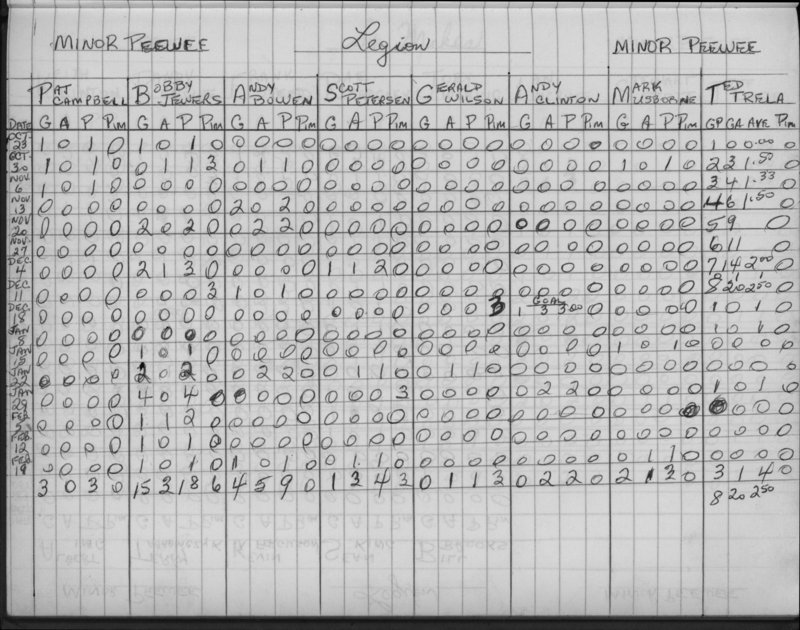 MINOR PEEWEE Legion MINOR PEEWEE
PAT CAMPBELL BOBBY JEWERS ANDY BOWEN SCOTT PETERSEN GERALD WILSON ANDY CLINTON MARK USBORNE TED TRELA
DATE G A P Pim G A P Pim G A P Pim G A P Pim G A P Pim G A P Pim G A P Pim GP GA AVE Pim
OCT. 23 1 0 1 0 1 0 1 0 0 0 0 0 0 0 0 0 0 0 0 0 0 0 0 0 0 0 0 0 1 0 0.00 0
OCT. 30 1 0 1 0 0 1 1 3 0 1 1 0 0 0 0 0 0 0 0 0 0 0 0 0 1 0 1 0 2 3 1.50 0
NOV 6 1 0 1 0 0 0 0 0 0 0 0 0 0 0 0 0 0 0 0 0 0 0 0 0 0 0 0 0 3 4 1.33 0
NOV 13 0 0 0 0 0 0 0 0 2 0 2 0 0 0 0 0 0 0 0 0 0 0 0 0 0 0 0 0 4 6 1.50 0
NOV 20 0 0 0 0 2 0 2 0 0 2 2 0 0 0 0 0 0 0 0 0 0 0 0 0 0 0 0 0 5 9 0
NOV. 27 0 0 0 0 0 0 0 0 0 0 0 0 0 0 0 0 0 0 0 0 0 0 0 0 0 0 0 0 6 11 0
DEC. 4 0 0 0 0 2 1 3 0 0 0 0 0 1 1 2 0 0 0 0 0 0 0 0 0 0 0 0 0 7 14 2.00 0
DEC. 11 0 0 0 0 0 0 0 3 1 0 1 0 0 0 0 0 0 0 0 0 0 0 0 0 0 0 0 0 8 20 2.50 0
DEC 18 0 0 0 0 0 0 0 0 0 0 0 0 0 0 0 0 0 0 0 3 GOAL 1 3 3.00 0 0 0 0 0 1 0 1 0
JAN 8 0 0 0 0 0 0 0 0 0 0 0 0 0 0 0 0 0 0 0 0 0 0 0 0 0 0 0 0 1 0 1 0
JAN 15 0 0 0 0 1 0 1 0 0 0 0 0 0 0 0 0 0 0 0 0 0 0 0 0 1 0 1 0 0 0 0 0
JAN 22 0 0 0 0 2 0 2 0 0 2 2 0 0 1 1 0 0 1 1 0 0 0 0 0 0 0 0 0 0 0 0 0
JAN 29 0 0 0 0 4 0 4 0 0 0 0 0 0 0 0 3 0 0 0 0 0 2 2 0 0 0 0 0 1 0 1 0
FEB 5 0 0 0 0 1 1 2 0 0 0 0 0 0 0 0 0 0 0 0 0 0 0 0 0 0 0 0 0 0 0 0
FEB 12 0 0 0 0 1 0 1 0 0 0 0 0 0 0 0 0 0 0 0 0 0 0 0 0 0 0 0 0 0 0 0 0
FEB 19 0 0 0 0 1 0 1 0 1 0 1 0 0 1 1 0 0 0 0 0 0 0 0 0 0 1 1 0 0 0 0 0
3 0 3 0 15 3 18 6 4 5 9 0 1 3 4 3 0 1 1 3 0 2 2 0 2 1 3 0 3 1 4 0
8 20 2.50